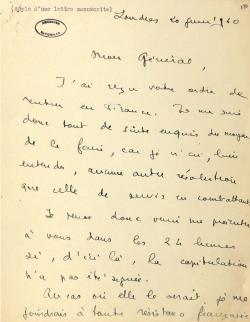 (Copie d'une lettre manuscrite)
Londres 20 juin 1940
Mon Général,
J'ai reçu votre ordre de
rentrer en France. Je me suis
donc tout de suite enquis du moyen
de le faire, car je n'ai, bien
entendu, aucune autre résolution
que celle de servir en combattant.
Je pense donc venir me présenter
à vous dans les 24 heures
si, d'ici là, la capitulation
n'a pas été signée.
Au cas où elle le serait, je me
joindrais à toute résistance française